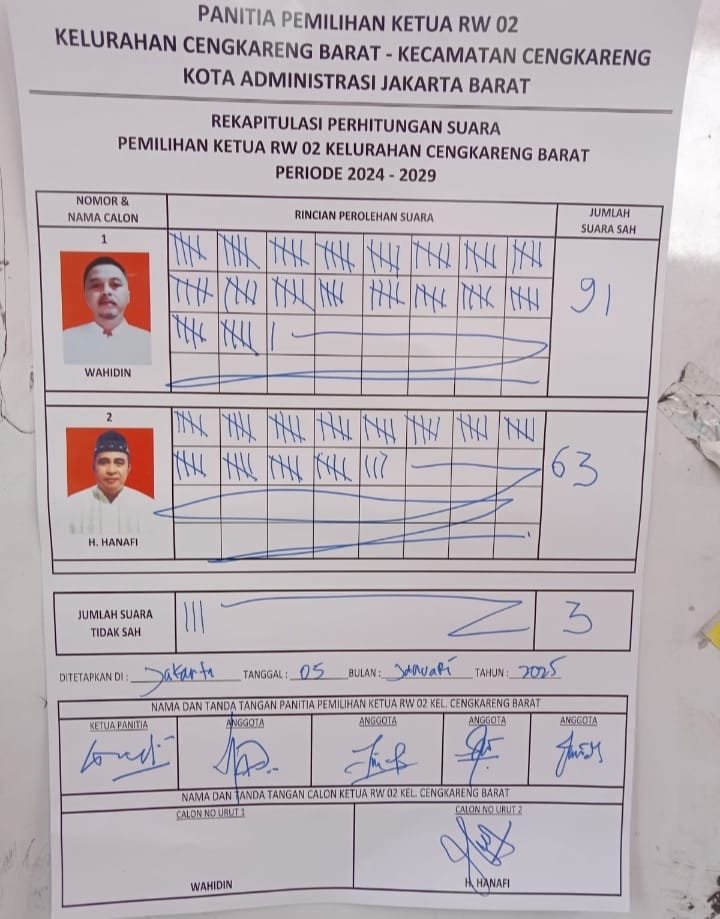 PANITIA PEMILIHAN KETUA RW 02
KELURAHAN CENGKARENG BARAT - KECAMATAN CENGKARENG
KOTA ADMINISTRASI JAKARTA BARAT
REKAPITULASI PERHITUNGAN SUARA
PEMILIHAN KETUA RW 02 KELURAHAN CENGKARENG BARAT
PERIODE 2024 - 2029
NOMOR &
NAMA CALON
RINCIAN PEROLEHAN SUARA
JUMLAH
SUARA SAH
1
WAHIDIN
91
2
H. HANAFI
63
JUMLAH SUARA
TIDAK SAH
3
DITETAPKAN DI : Jakarta TANGGAL : 05 BULAN : Januari TAHUN : 2025
NAMA DAN TANDA TANGAN PANITIA PEMILIHAN KETUA RW 02 KEL. CENGKARENG BARAT
KETUA PANITIA ANGGOTA ANGGOTA ANGGOTA ANGGOTA
NAMA DAN TANDA TANGAN CALON KETUA RW 02 KEL. CENGKARENG BARAT
CALON NO URUT 1
CALON NO URUT 2
WAHIDIN
H. HANAFI